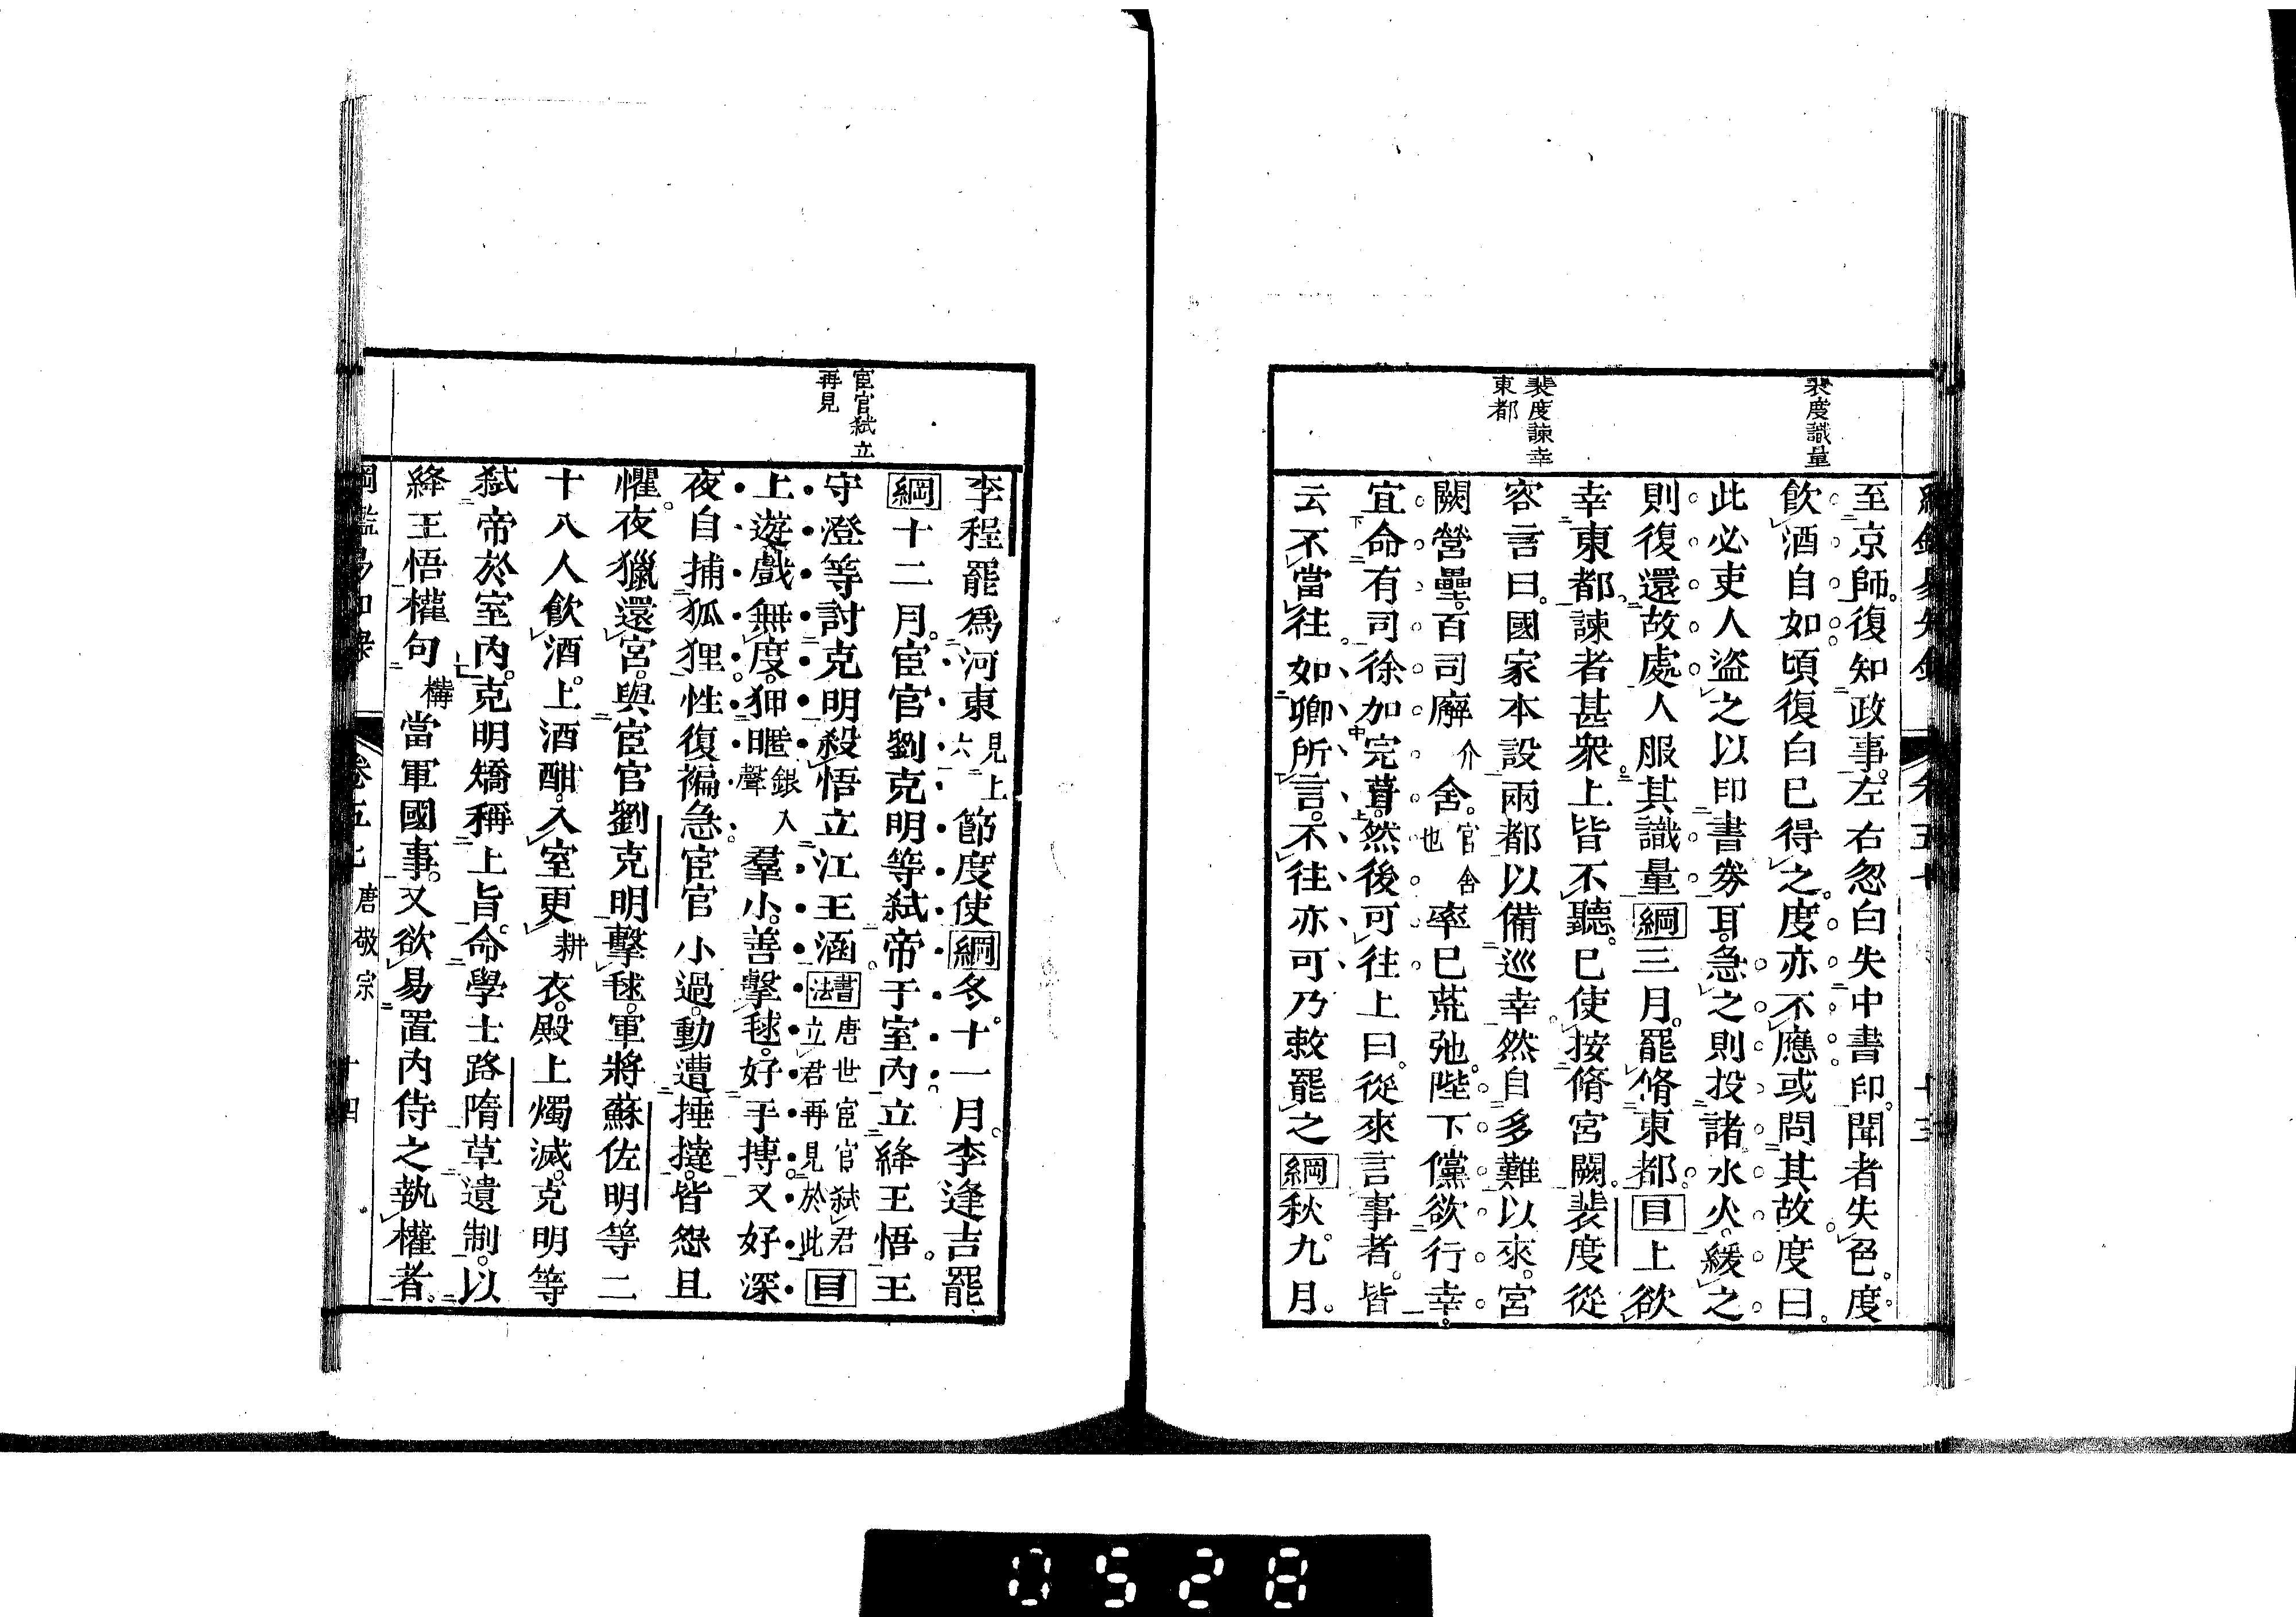 裴度識量
裴度諫幸
東都
至京師。復知政事。左右忽白失中書印。聞者失色。度
飮酒自如。頃復白已得之。度亦不應。或問其故。度曰。
此必吏人盜之以印書劵耳。急之則投諸水火。緩之
則復還故處。人服其識量。綱三月。罷脩東都。目上欲
幸東都。諫者甚衆。上皆不聽。已使按脩宮闕。裴度從
容言曰。國家本設兩都以備巡幸。然自多難以來。宮
闕營壘。百司廨介舍。官舍也率已荒弛。陛下儻欲行幸。
宜命有司徐加完葺。然後可往。上曰。從來言事者。皆
云不當往。如卿所言。不往亦可。乃敕罷之。綱秋。九月。
宦官弑立
再見
李程罷爲河東見上六節度使。綱冬。十一月。李逢吉罷。
綱十二月。宦官劉克明等弑帝于室內。立絳王悟。王
守澄等討克明。殺悟立江王涵。書法唐世宦官弑君立君再見於此目
上遊戲無度。狎暱銀入聲羣小。善擊毬。好手搏。又好深
夜自捕狐狸。性復褊急。宦官小過。動遭捶撻。皆怨且
懼。夜獵還宮。與宦官劉克明擊毬。軍將蘇佐明等二
十八人飮酒。上酒酣。入室更耕衣。殿上燭滅。克明等
弑帝於室內。克明矯稱上旨。命學士路隋草遺制。以
絳王悟權句構當軍國事。又欲易置內侍之執權者。
綱鑑易知錄 卷五七 唐敬宗 十四
0528